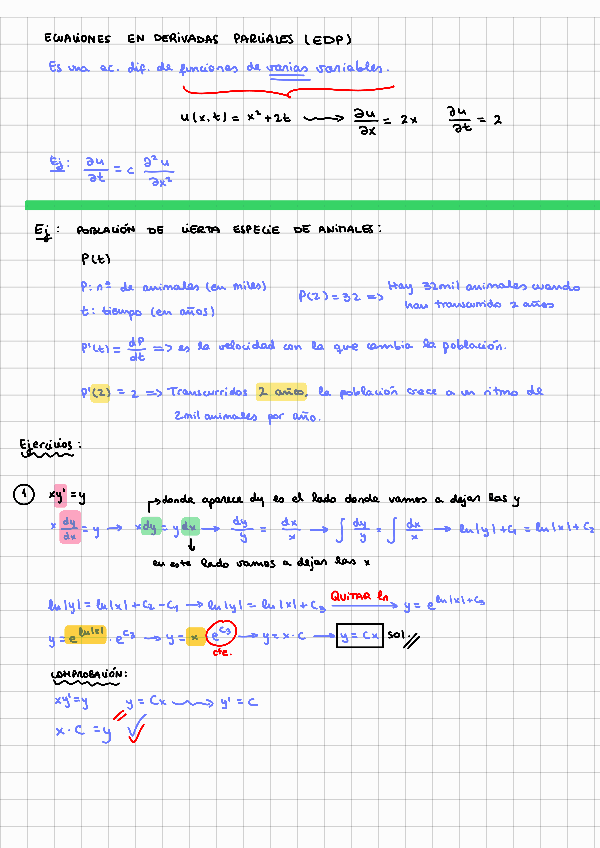 ECUACIONES EN DERIVADAS PARCIALES (EDP)
Es una ec. dif. de funciones de varias variables.
u(x,t) = x² + 2t ⟿ ∂u/∂x = 2x ∂u/∂t = 2
Ej: ∂u/∂t = c ∂²u/∂x²
Ej: POBLACIÓN DE CIERTA ESPECIE DE ANIMALES:
P(t)
P: nº de animales (en miles)
t: tiempo (en años)
P(2) = 32 => Hay 32mil animales cuando
han transcurrido 2 años
P'(t) = dP/dt => es la velocidad con la que cambia la población.
P'(2) = 2 => Transcurridos 2 años, la población crece a un ritmo de
2mil animales por año.
Ejercicios:
① xy' = y
donde aparece dy es el lado donde vamos a dejar las y
x dy/dx = y → x dy = y dx → dy/y = dx/x → ∫ dy/y = ∫ dx/x → ln|y| + C₁ = ln|x| + C₂
en este lado vamos a dejar las x
ln|y| = ln|x| + C₂ - C₁ → ln|y| = ln|x| + C₃ QUITAR ln → y = e^(ln|x| + C₃)
y = e^(ln|x|) · e^(C₃) → y = x e^(C₃) → y = x · C → y = Cx sol.
cte.
COMPROBACIÓN:
xy' = y y = Cx ⟿ y' = C
x · C = y ✓